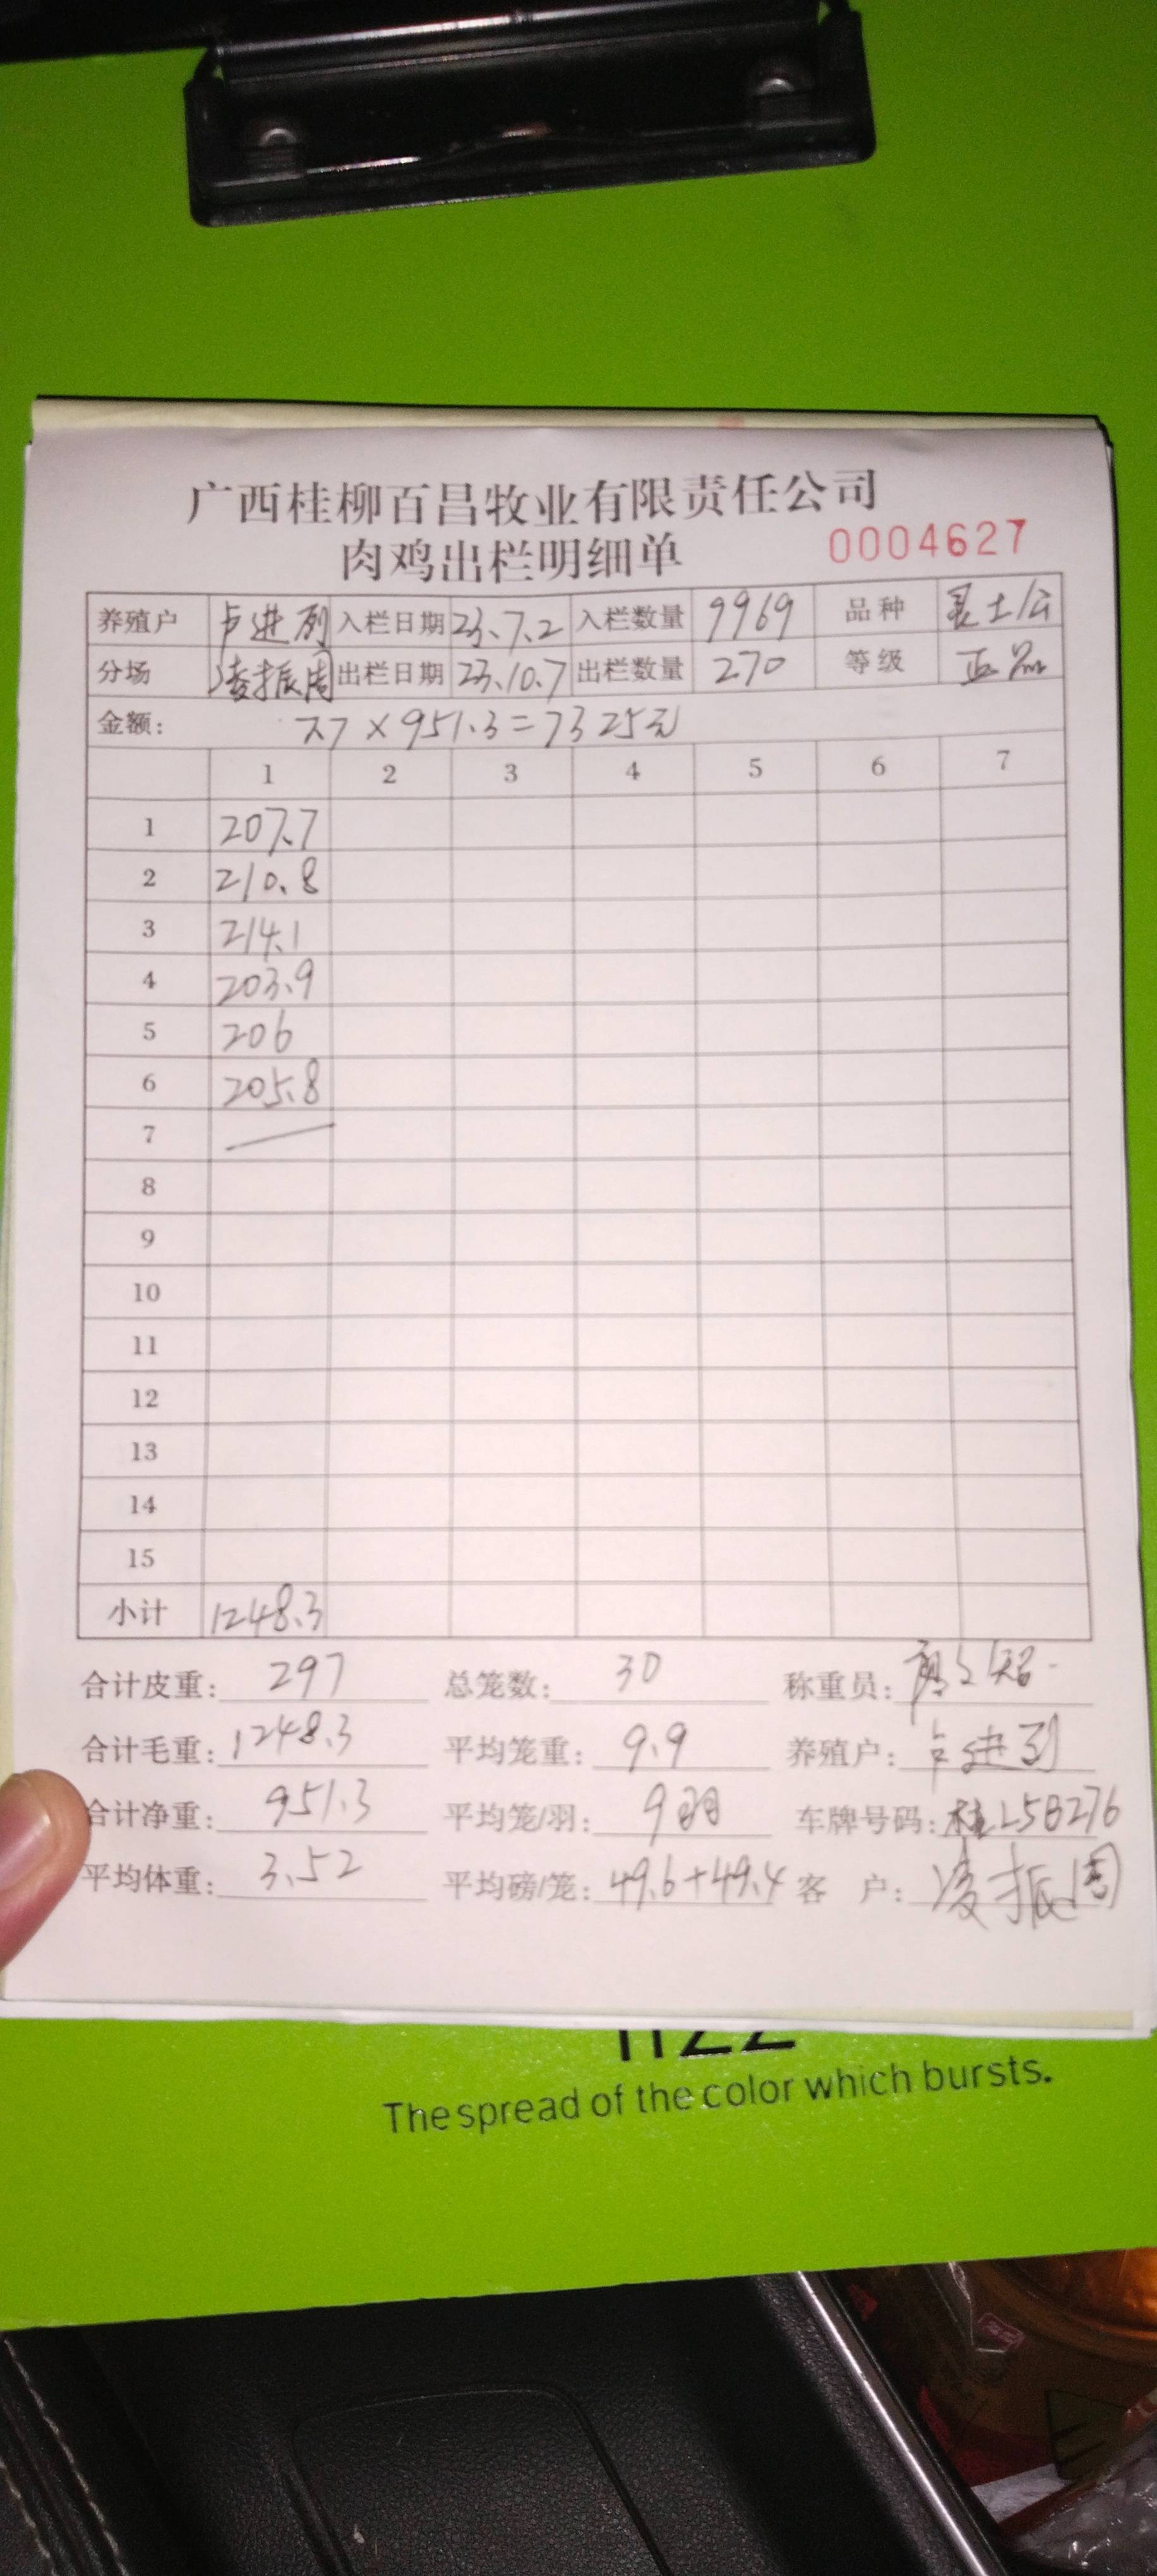 广西桂柳百昌牧业有限责任公司
肉鸡出栏明细单 0004627
养殖户 卢进列 入栏日期 23.7.2 入栏数量 9969 品种 灵土/公
分场 凌振周 出栏日期 23.10.7 出栏数量 270 等级 正品
金额: 7.7×951.3=7325元
1 2 3 4 5 6 7
1 207.7
2 210.8
3 214.1
4 203.9
5 206
6 205.8
7
8
9
10
11
12
13
14
15
小计 1248.3
合计皮重: 297 总笼数: 30 称重员:
合计毛重: 1248.3 平均笼重: 9.9 养殖户: 卢进列
合计净重: 951.3 平均笼/羽: 9羽 车牌号码: 桂L5B276
平均体重: 3.52 平均磅/笼: 49.6+49.4 客 户: 凌振周
The spread of the color which bursts.